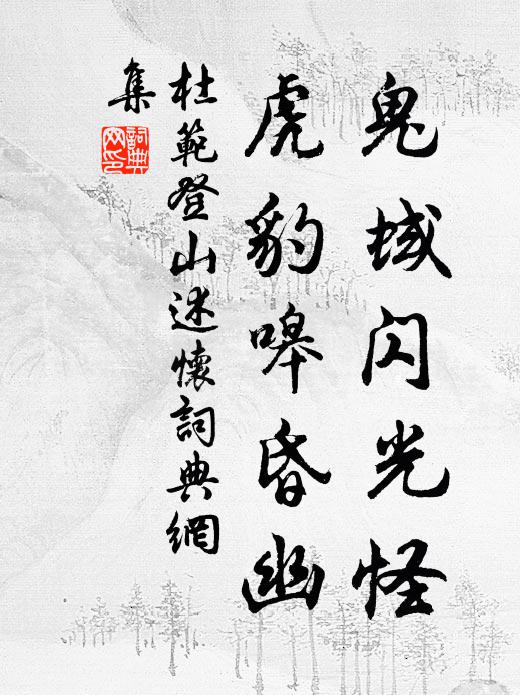 鬼域閃光怪
虎豹嗥昏幽
杜範登山述懷詞典網
集
詞典網印